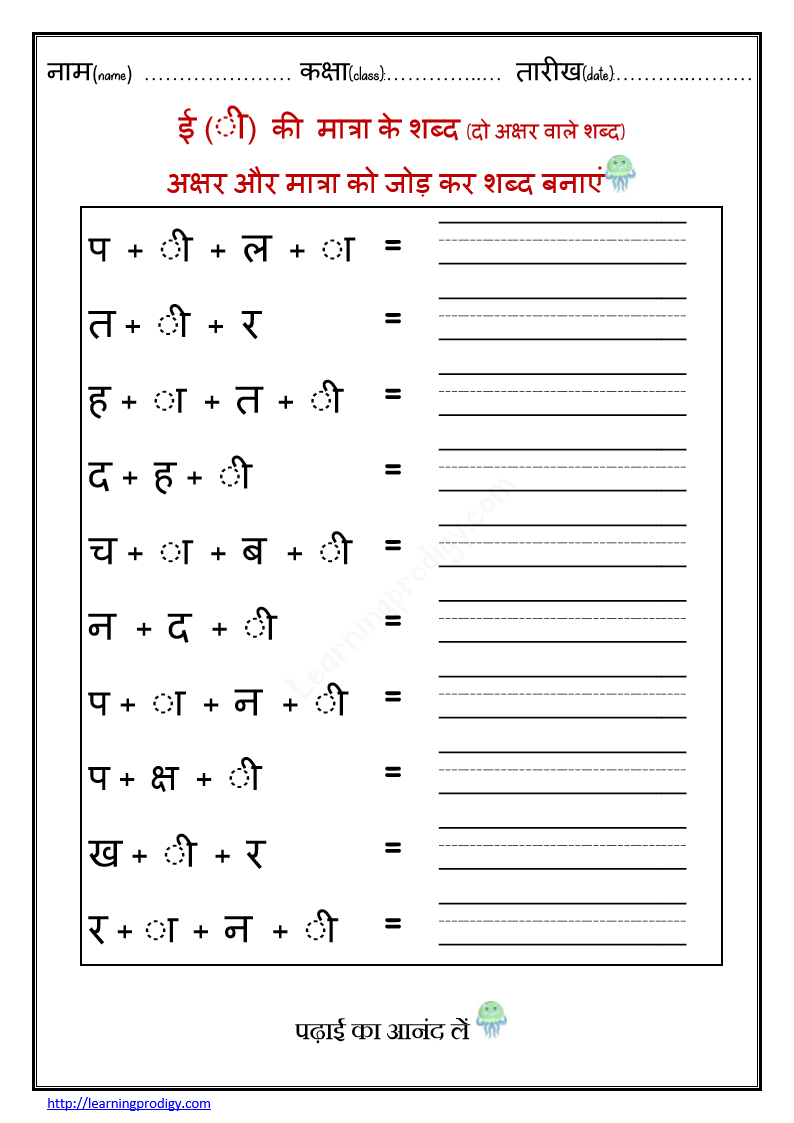 नाम(name) ………………… कक्षा(class):…………..… तारीख(date):………..………
ई (ी) की मात्रा के शब्द (दो अक्षर वाले शब्द)
अक्षर और मात्रा को जोड़ कर शब्द बनाएं
प + ी + ल + ा =
त + ी + र =
ह + ा + त + ी =
द + ह + ी =
च + ा + ब + ी =
न + द + ी =
प + ा + न + ी =
प + क्ष + ी =
ख + ी + र =
र + ा + न + ी =
Learningprodigy.com
पढ़ाई का आनंद लें
http://learningprodigy.com